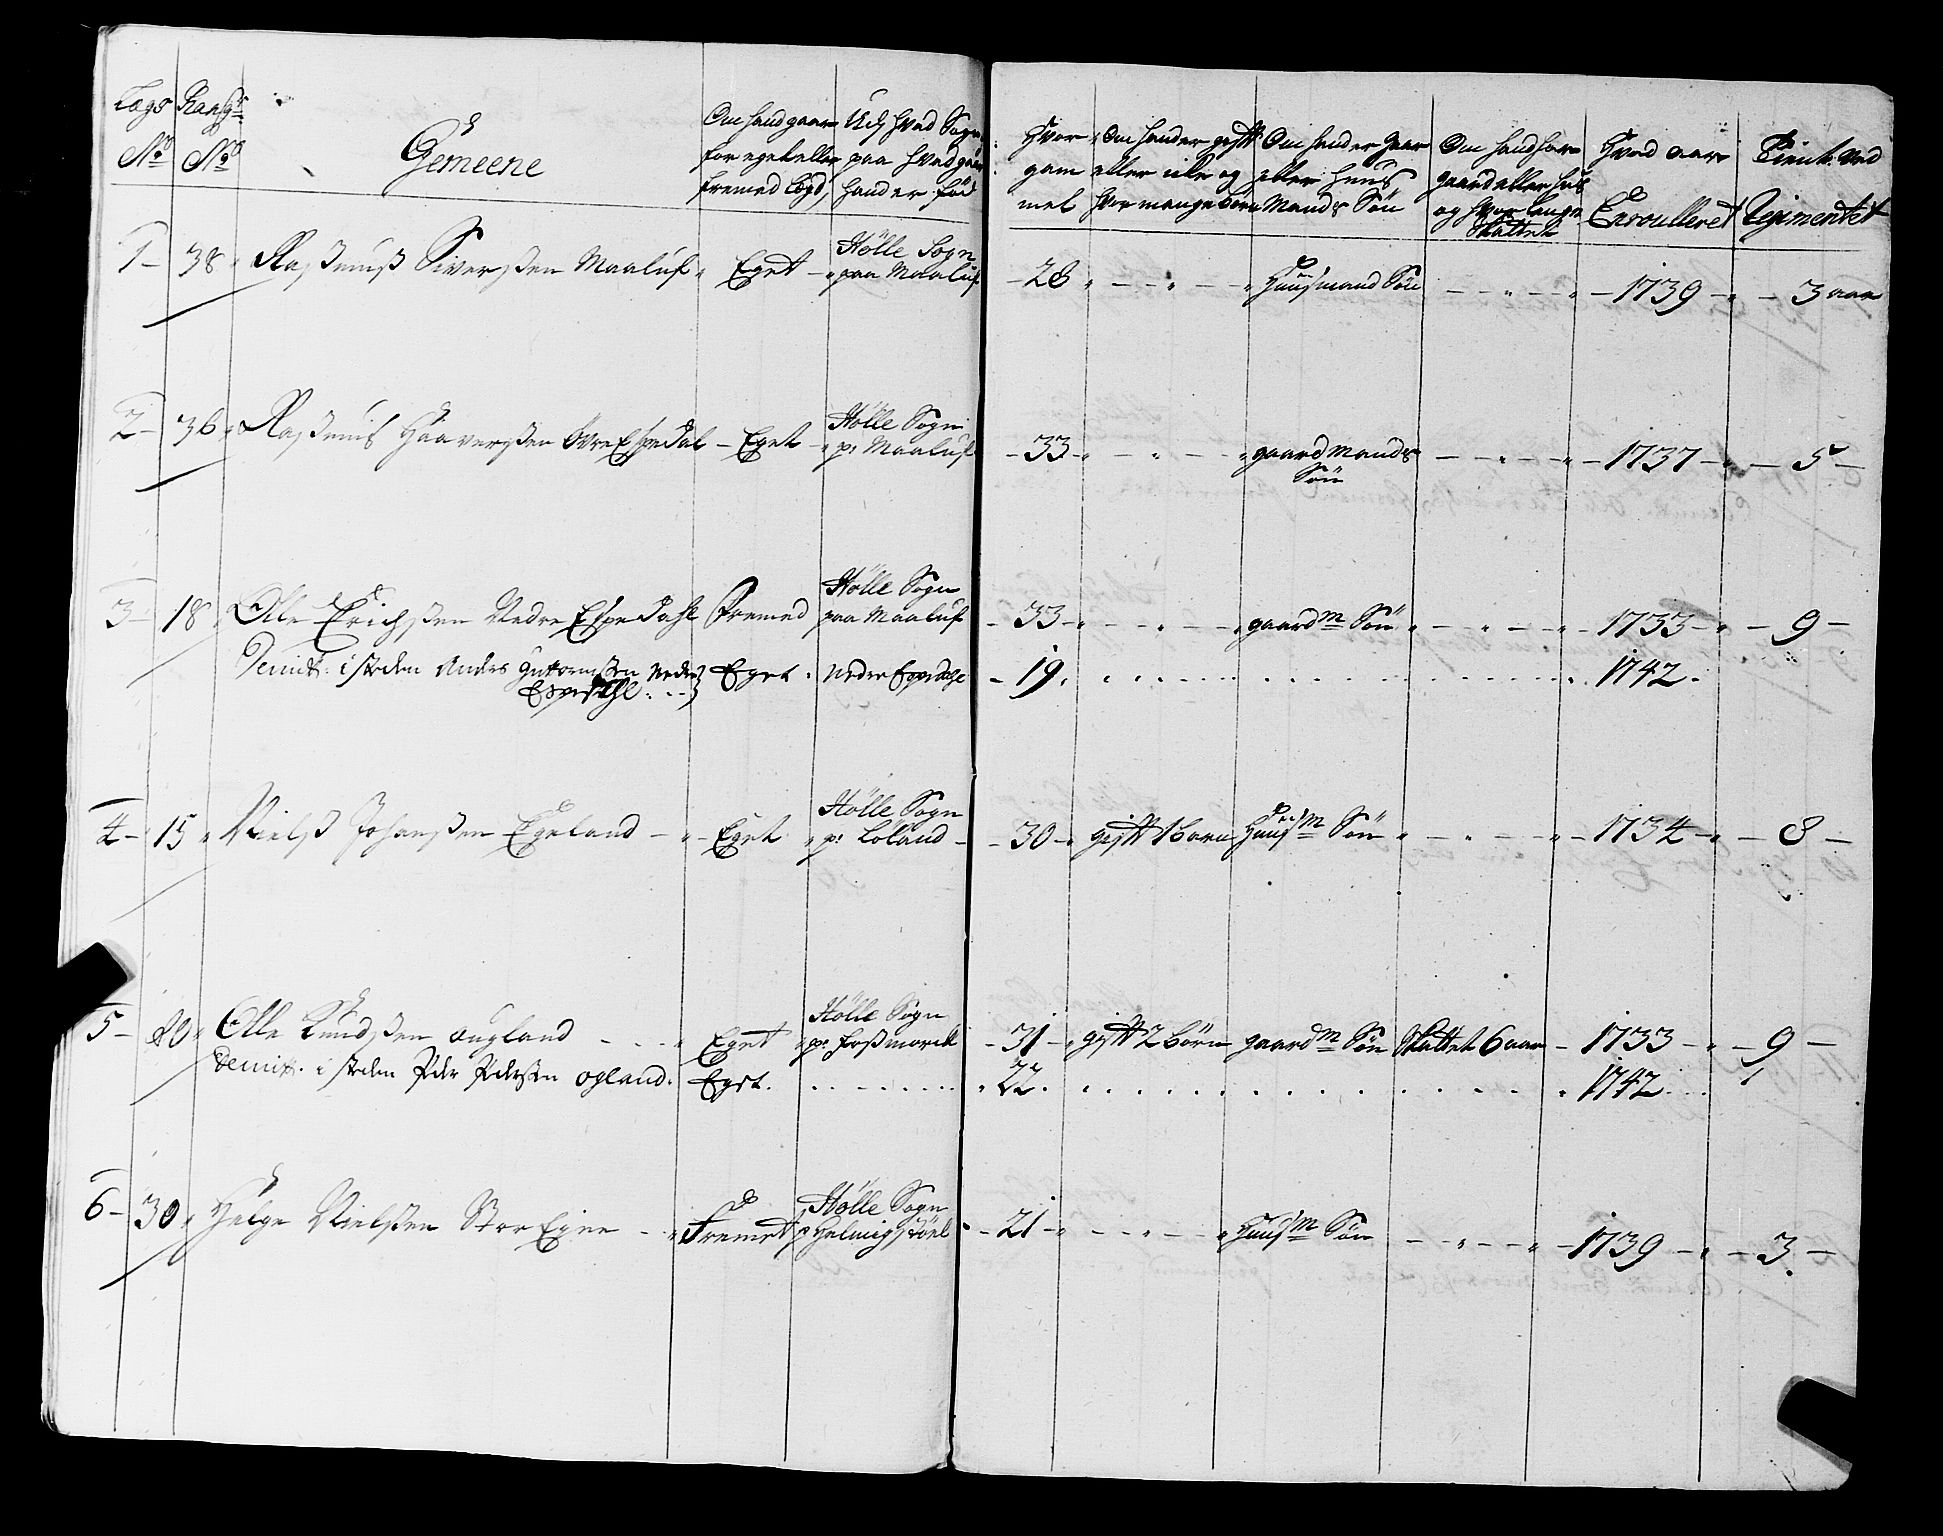 Lægs Rang
No No Gemeene Om hand gaar for eget eller fremed Lægd, Udj hvad Sogn paa hvad gaar hand er föd
Hvor gam mel Om hand er gifft eller icke og hvor mange börn Om hand er gaar eller huus Mands Sön Om hand har gaard eller huus og hvor lange Skattet Hvad aar Enroulleret Tient ved Regimentet
1 – 38 Rasmus Siversen Maaluf Eget Hölle Sogn paa Maaluf – 28 Huusmand Sön – 1739 – 3 aar
2 – 36 Rasmus Haaversen Övre Espedal – Eget Hölle Sogn p: Maaluf – 33 gaard Mands Sön – 1737 – 5 –
3 – 18 Olle Erichsen Nedre Espedahl Fremed Hölle Sogn paa Maaluf – 33 gaard m Sön – 1733 – 9 –
Demitt: i steden Anders Guttormsen Nedre Espedahl Eget. Nedre Espedahl – 19. 1742.
4 – 15 Nielss Johansen Egeland – Eget Hölle Sogn p: Loland – 30 gifft 1 barn Huus m Sön – 1734 – 8 –
5 – 20 Olle Knudsen augland Eget Hölle Sogn p: Fossmorck – 31 gifft 2 börn gaard m Sön Skattet 6 aar – 1733 – 9 –
Demitt. i steden Peder Pedersen Ogland. Eget. 22. 1742
6 – 30 Helge Nielsen Stor Eiene Fremet Hölle Sogn p: Helmigstöel – 21 Huus m Sön – 1739 – 3.